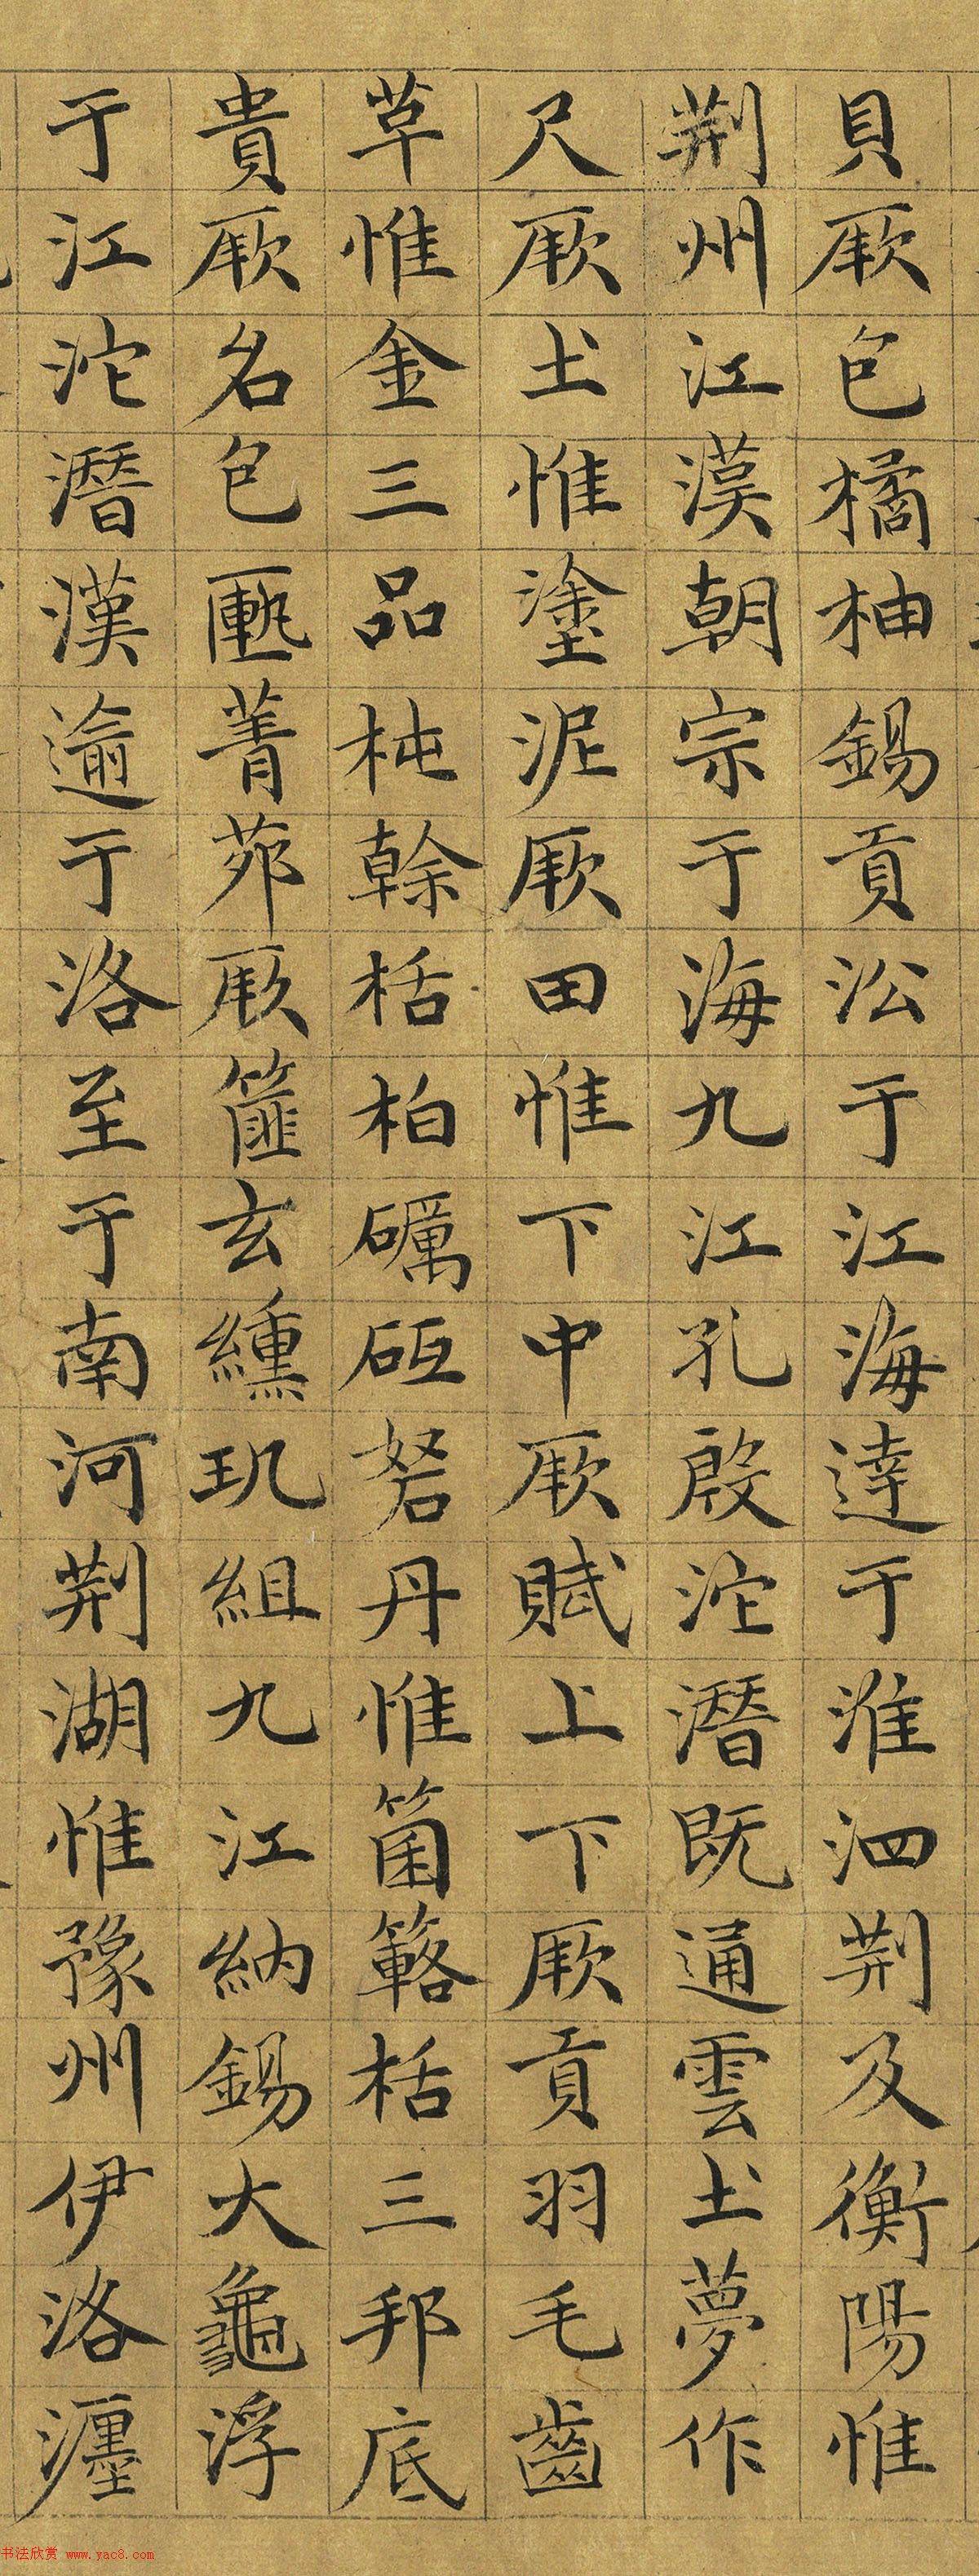 貝厥包橘柚錫貢㳂于江海達于淮泗荊及衡陽惟
荊州江漢朝宗于海九江孔殷沱潛既通雲土夢作
尺厥土惟塗泥厥田惟下中厥賦上下厥貢羽毛齒
草惟金三品杶榦栝柏礪砥砮丹惟箘簵栝三邦底
貴厥名包匭菁茆厥篚玄纁玑組九江納錫大龜浮
于江沱潛漢逾于洛至于南河荊湖惟豫州伊洛瀍
书法欣赏 www.yac8.com